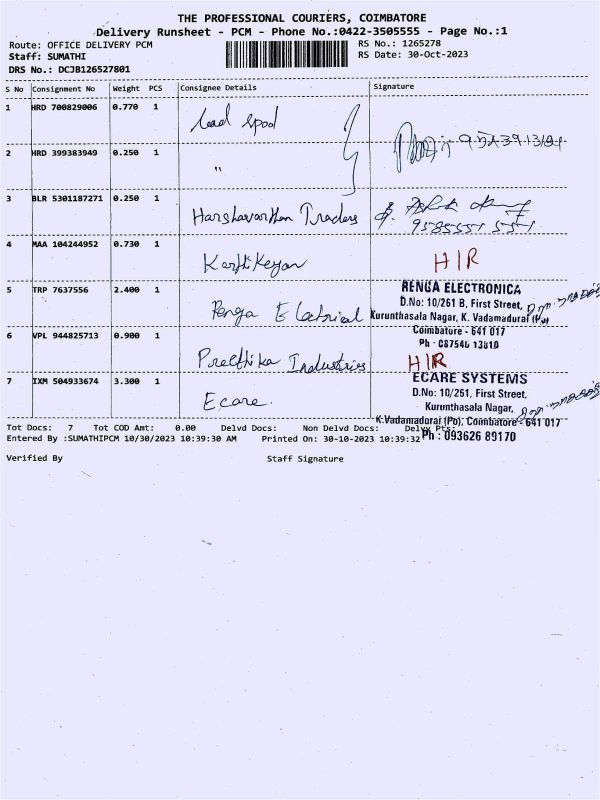 THE PROFESSIONAL COURIERS, COIMBATORE
Delivery Runsheet - PCM - Phone No.:0422-3505555 - Page No.:1
Route: OFFICE DELIVERY PCM
RS No.: 1265278
Staff: SUMATHI
RS Date: 30-Oct-2023
DRS No.: DCJB126527801
S No Consignment No Weight PCS Consignee Details Signature
1 HRD 700829006 0.770 1
2 HRD 399383949 0.250 1 "
3 BLR 5301187271 0.250 1 Harshavardhan Traders
9585551 551
4 MAA 104244952 0.730 1 Karthikeyan H/R
5 TRP 7637556 2.400 1 Renga Electrical
RENGA ELECTRONICA
D.No: 10/261 B, First Street,
Kurunthasala Nagar, K. Vadamadurai (Po)
Coimbatore - 641 017
Ph : 087546 13810
6 VPL 944825713 0.900 1 Preethika Industries H/R
7 IXM 504933674 3.300 1 Ecare.
ECARE SYSTEMS
D.No: 10/261, First Street,
Kurunthasala Nagar,
K.Vadamadurai (Po), Coimbatore - 641 017
Ph : 093626 89170
Tot Docs: 7 Tot COD Amt: 0.00 Delvd Docs: Non Delvd Docs: Delvy Pts:
Entered By :SUMATHIPCM 10/30/2023 10:39:30 AM Printed On: 30-10-2023 10:39:32
Verified By Staff Signature